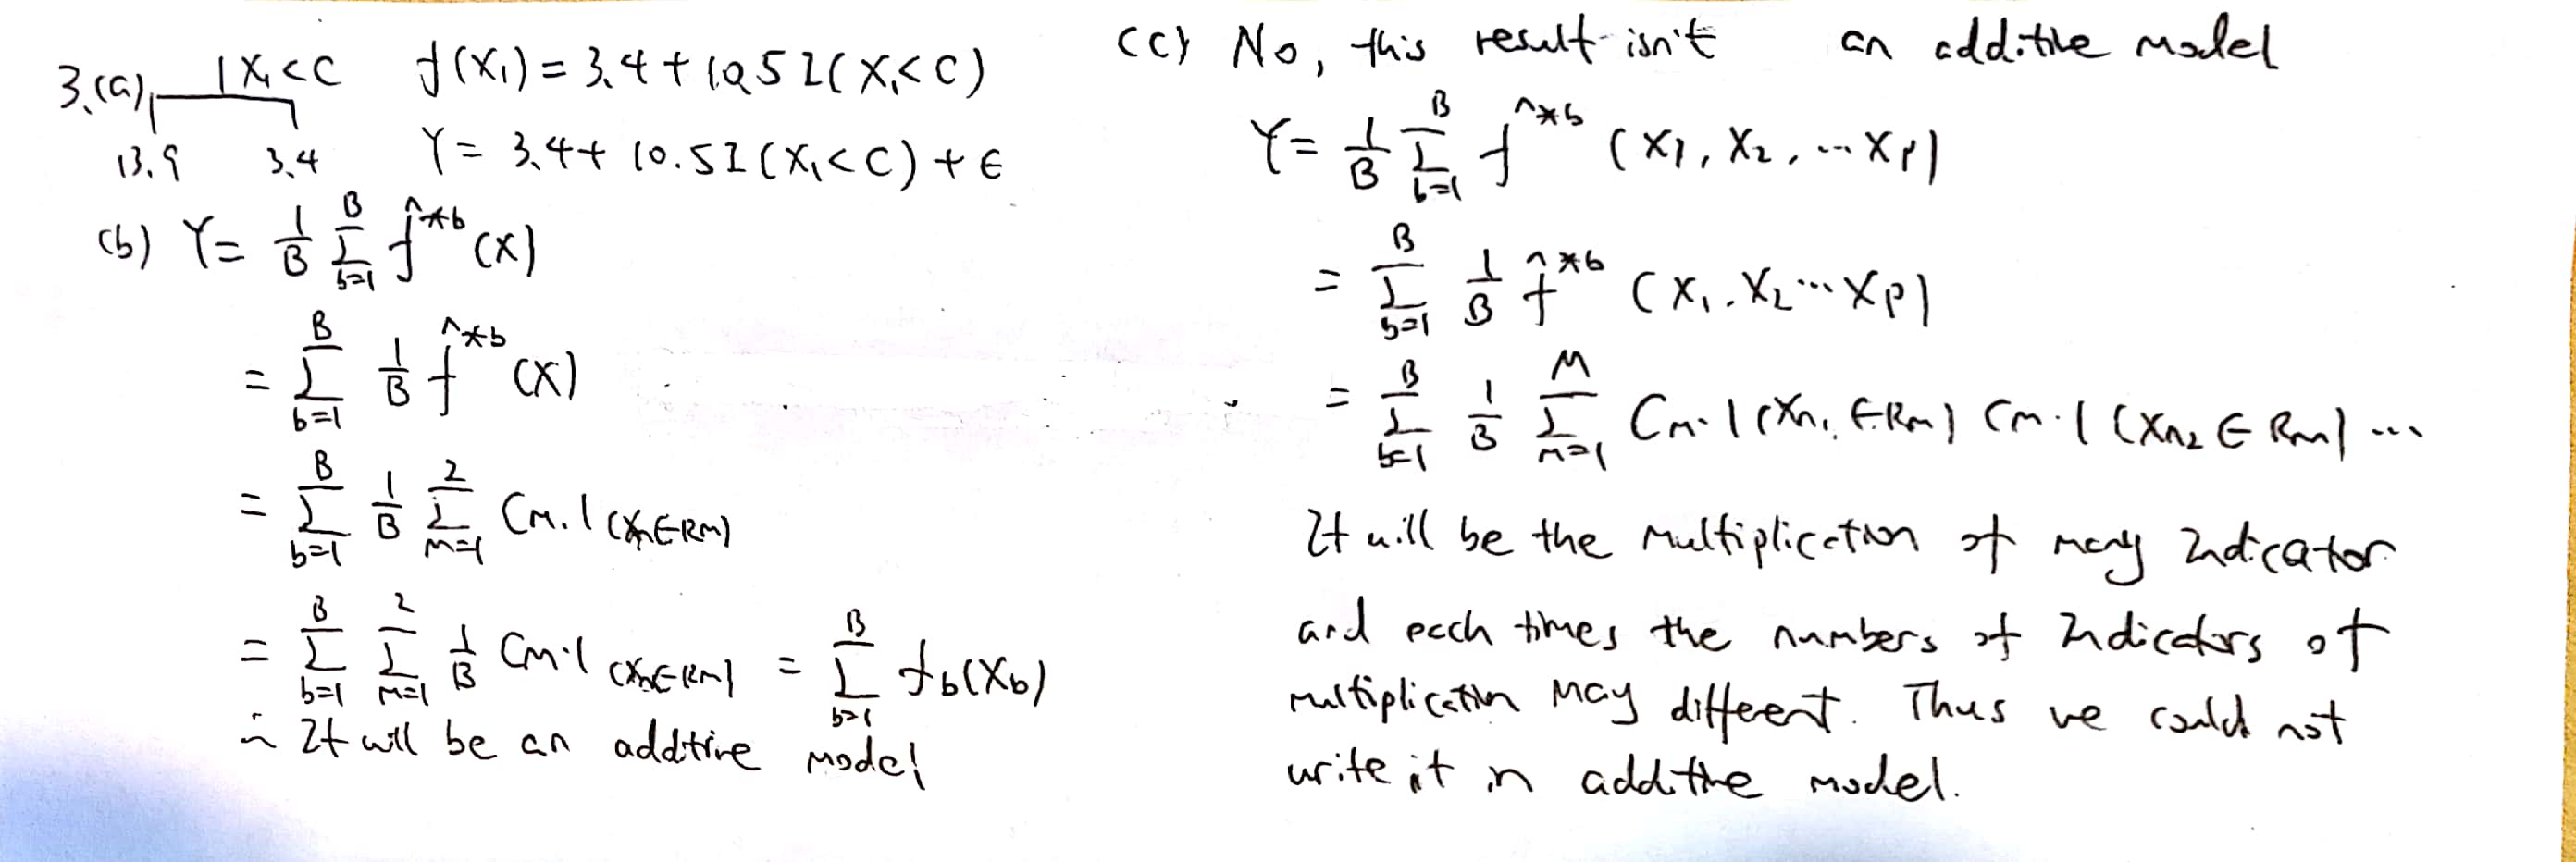 3.(a) X₁<C f(X₁) = 3.4 + 10.5 I(X₁<C)
13.9 3.4 Y = 3.4 + 10.5 I(X₁<C) + ϵ
(b) Y = 1/B Σ_{b=1}^{B} f̂^{*b}(X)
= Σ_{b=1}^{B} 1/B f̂^{*b}(X)
= Σ_{b=1}^{B} 1/B Σ_{m=1}^{2} Cm·1(Xn∈Rm)
= Σ_{b=1}^{B} Σ_{m=1}^{2} 1/B Cm·1(Xn∈Rm) = Σ_{b=1}^{B} f_b(X_b)
∴ It will be an additive model
(c) No, this result isn't an additive model
Y = 1/B Σ_{b=1}^{B} f̂^{*b}(X₁, X₂, ... Xp)
= Σ_{b=1}^{B} 1/B f̂^{*b}(X₁, X₂ ... Xp)
= Σ_{b=1}^{B} 1/B Σ_{m=1}^{M} Cm·1(Xn₁∈Rm) Cm·1(Xn₂∈Rm) ...
It will be the multiplication of many Indicator
and each times the numbers of Indicators of
multiplication may different. Thus we could not
write it in additive model.